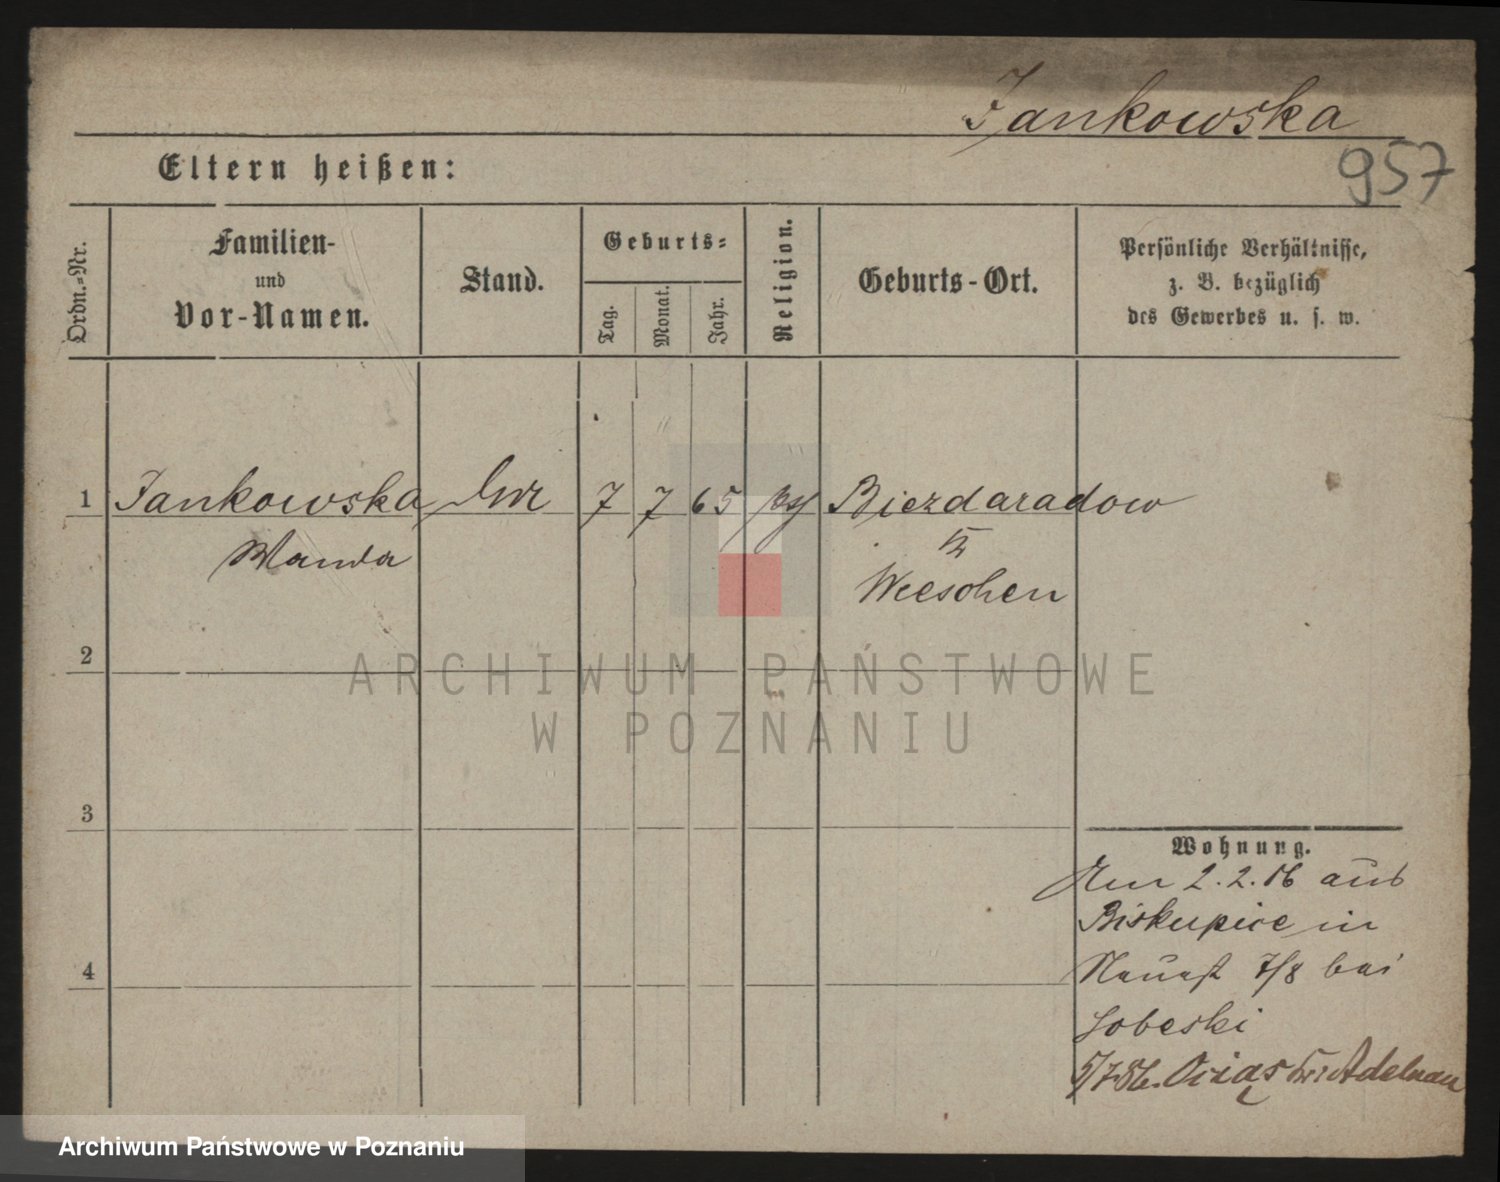 Jankowska
957
Eltern heißen:
Ordn.-Nr.
Familien-
und
Vor-Namen.
Stand.
Geburts-
Tag.
Monat.
Jahr.
Religion.
Geburts-Ort.
Persönliche Verhältnisse,
z. B. bezüglich
des Gewerbes u. s. w.
1 Jankowska 7 7 65 Biezdaradow
Wanda
Wreschen
2
ARCHIWUM PAŃSTWOWE
W POZNANIU
3
4
Wohnung.
2.2.86 aus
Biskupice in
7/8 bei
Sobeski
5/7 86. Ociąż Adelnau
Archiwum Państwowe w Poznaniu